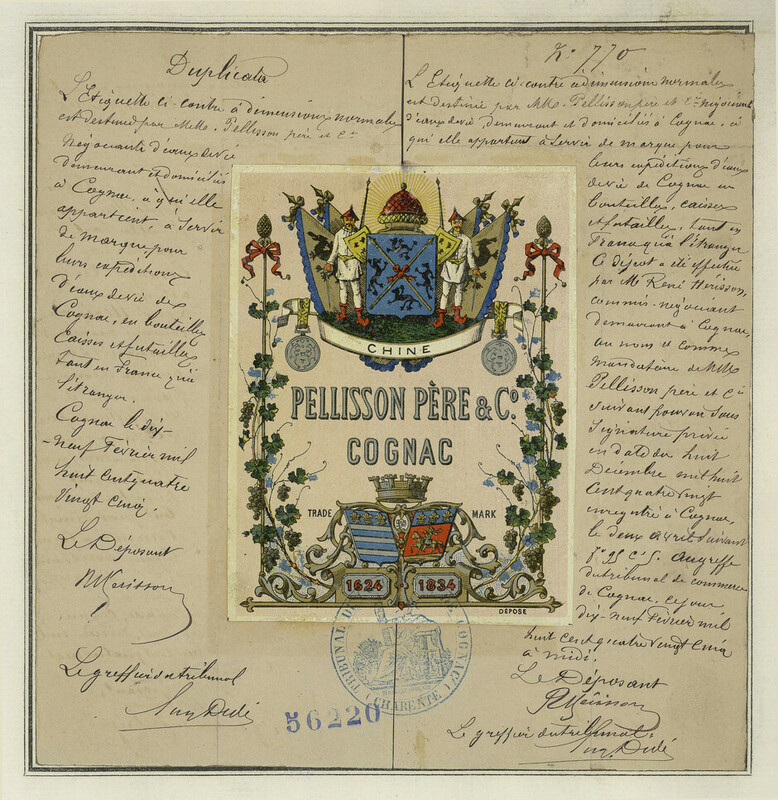 Duplicata
L'Etiquette ci-contre à dimensions normales
est destinée par MM. Pellisson père et Cie
Négociants d'eaux de vie
demeurant et domiciliés
à Cognac, a qui elle
appartient, à servir
de marque pour
leurs expéditions
d'eaux de vie de
Cognac, en bouteilles
caisses et futailles
tant en France qu'à
l'étranger.
Cognac le dix-
-neuf Février mil
huit cent quatre
vingt cinq.
Le Déposant
Le greffier du tribunal
No 770
L'Etiquette ci-contre à dimensions normales
est destinée par MM. Pellisson père et Cie négociants
d'eaux de vie, demeurant et domiciliés à Cognac, à
qui elle appartient à servir de marque pour
leurs expéditions d'eaux
de vie de Cognac en
bouteilles, caisses
et futailles, tant en
France qu'à l'étranger
Ce dépôt a été effectué
par M. René Hérisson,
commis-négociant
demeurant à Cognac,
au nom et comme
mandataire de MM.
Pellisson père et Cie
suivant pouvoir sous
signature privée
en date du huit
Décembre mil huit
cent quatre vingt
enregistré à Cognac,
le deux avril suivant
au greffe
du tribunal de commerce
de Cognac, le jour
dix-neuf Février mil
huit cent quatre vingt cinq
à midi.
Le Déposant
Le greffier du tribunal
CHINE
PELLISSON PÈRE & Co.
COGNAC
TRADE MARK
1624 1834
DÉPOSÉ
TRIBUNAL DE COGNAC
(CHARENTE)
56220